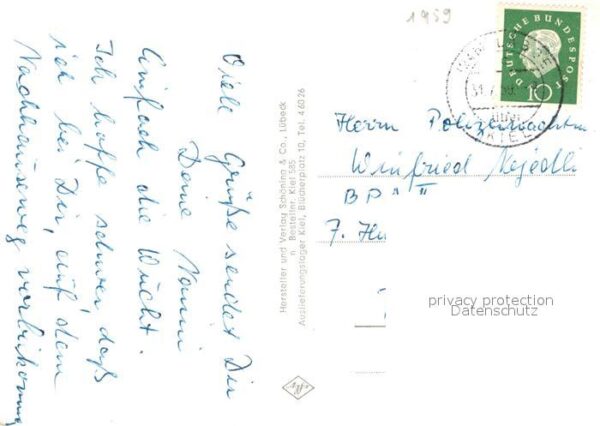 1959
Viele Grüße sendet Dir
Deine Nanni
Einfach die Wucht.
Ich hoffe schwer, daß
ich bei Dir, auf dem
Nachhauseweg
Hersteller und Verlag Schöning & Co., Lübeck
n Bestellnr. Kiel 585
Auslieferungslager Kiel, Blücherplatz 10, Tel. 4 6026
DEUTSCHE BUNDESPOST
10
KIEL
Herrn Polizeiwachtm
Winfried Nejedli
BPA II
7.
privacy protection
Datenschutz